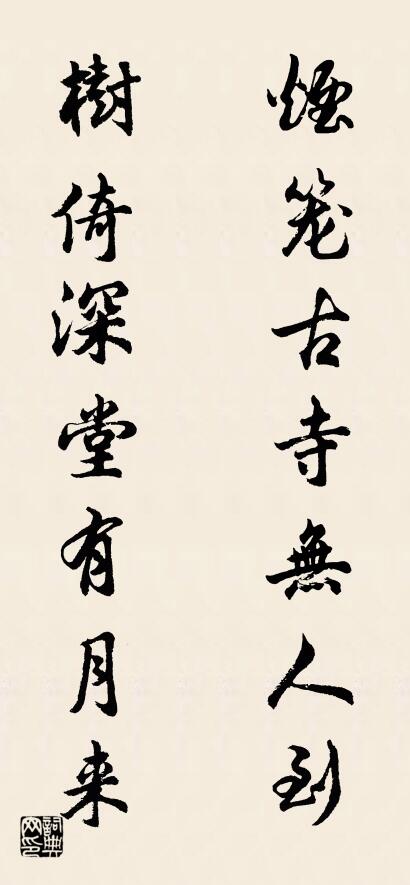 煙笼古寺無人到
樹倚深堂有月来
詞典网印